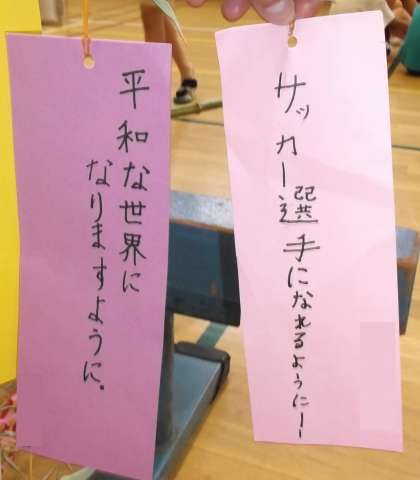 平和な世界に
なりますように。
サッカー選手になれるように!